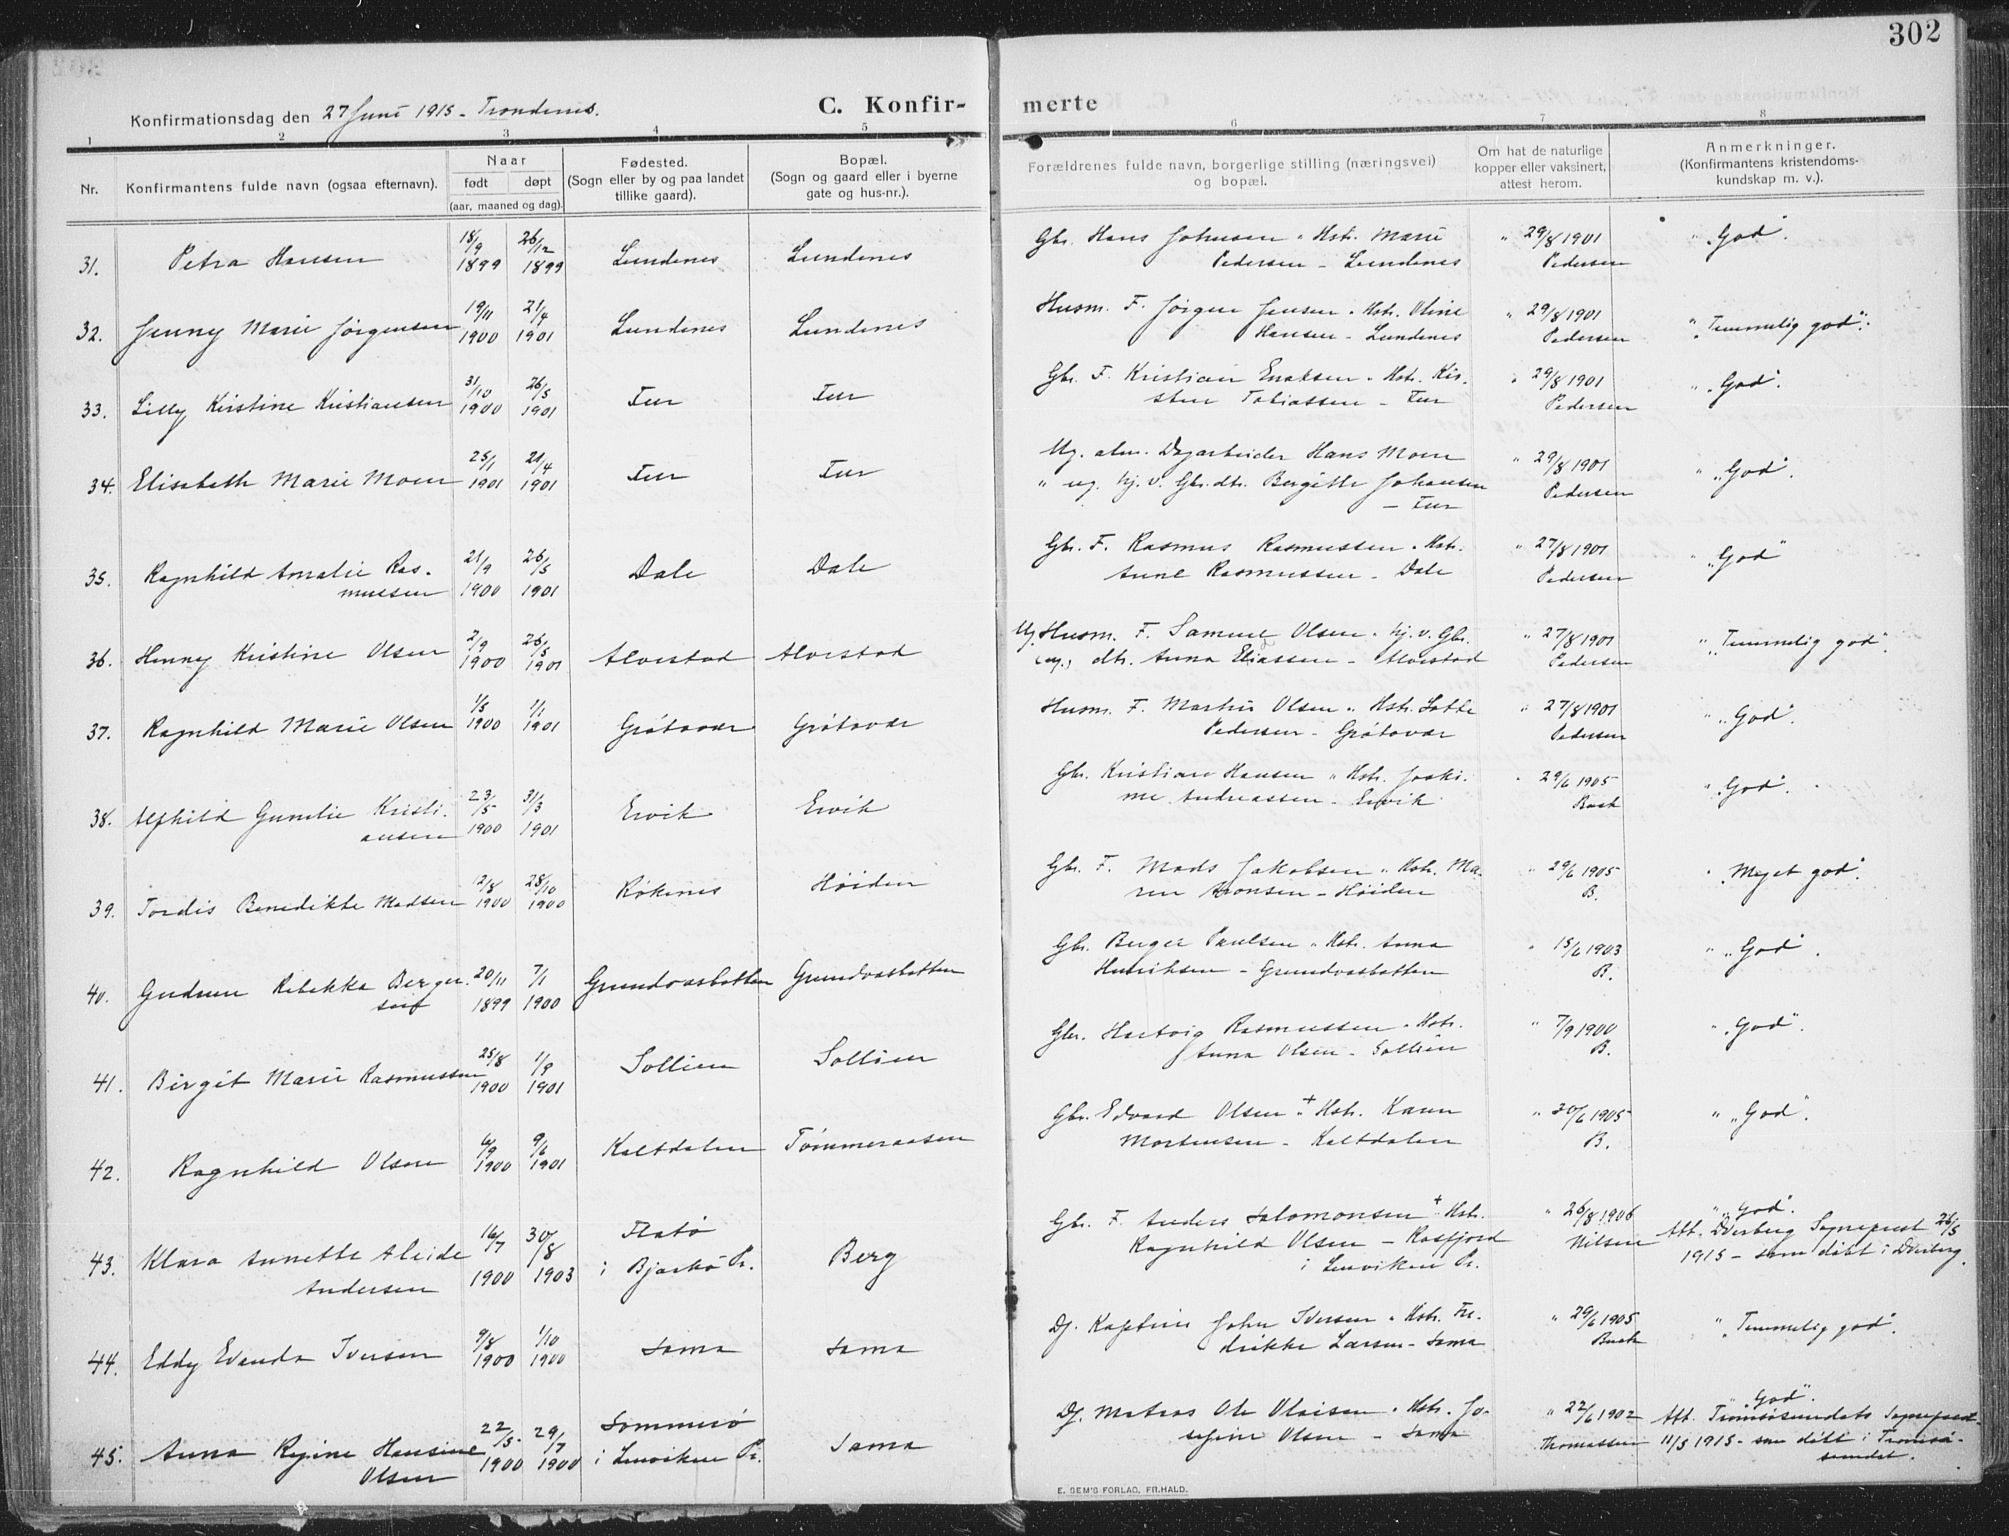 302
Konfirmationsdag den 27 Juni 1915 - Trondenes.
C. Konfir-
merte
1 2 3 4 5 6 7 8
Nr.
Konfirmantens fulde navn (ogsaa efternavn).
Naar
født døpt
(aar, maaned og dag).
Fødested.
(Sogn eller by og paa landet
tillike gaard).
Bopæl.
(Sogn og gaard eller i byerne
gate og hus-nr.).
Forældrenes fulde navn, borgerlige stilling (næringsvei)
og bopæl.
Om hat de naturlige
kopper eller vaksinert,
attest herom.
Anmerkninger.
(Konfirmantens kristendoms-
kundskap m. v.).
31. Petra Hansen 18/9 1899 26/12 1899 Lundenes Lundenes
Gbr. Hans Johnsen " Hstr. Marie
Pedersen - Lundenes
" 29/8 1901
Pedersen
" "God".
32. Jenny Marie Jørgensen 19/11 1900 21/4 1901 Lundenes Lundenes
Husm. F. Jørgen Jensen " Hstr. Oline
Hansen - Lundenes
" 29/8 1901
Pedersen
" "Temmelig god".
33. Lilly Kirstine Kristiansen 31/10 1900 26/5 1901 Fur Fur
Gbr. F. Kristian Enoksen " Hstr. Kir-
stin Tobiassen - Fur
" 29/8 1901
Pedersen
" "God".
34. Elisabeth Marie Moen 25/1 1901 21/4 1901 Fur Fur
Ug. alm. Dagarbeider Hans Moen
" ug. hj. v. Gbr. dtr. Bergitte Johansen
- Fur
" 29/8 1901
Pedersen
" "God".
35. Ragnhild Amalie Ras-
mussen 21/9 1900 26/5 1901 Dale Dale
Gbr. F. Rasmus Rasmussen " Hstr.
Anne Rasmussen - Dale
" 27/8 1901
Pedersen
" "God"
36. Henny Kristine Olsen 2/9 1900 26/5 1901 Alvestad Alvestad
Ug. Husm. F. Samuel Olsen " hj. v. Gbr.
(ug.) dtr. Anna Eliassen - Alvestad
" 27/8 1901
Pedersen
" "Temmelig god".
37. Ragnhild Marie Olsen 1/5 1900 1/1 1901 Grøtavær Grøtavær
Husm. F. Martin Olsen " Hstr. Lotte
Pedersen - Grøtavær
" 27/8 1901
Pedersen
" "God".
38. Alfhild Gunelie Kristi-
ansen 23/5 1900 31/3 1901 Ervik Ervik
Gbr. Kristian Hansen " Hstr. Joaki-
me Andreassen - Ervik
" 29/6 1905
Buch
" "God".
39. Tordis Benedikte Madsen 12/8 1900 28/10 1900 Røkenes Høiden
Gbr. F. Mads Jakobsen " Hstr. Ma-
ren Aronsen - Høiden
" 29/6 1905
B.
" "Meget god".
40. Gudrun Rebekka Berger-
sen 20/11 1899 7/1 1900 Grundvasbotten Grundvasbotten
Gbr. Berger Paulsen " Hstr. Anna
Henriksen - Grundvasbotten
" 15/6 1903
B.
" "God".
41. Birgit Marie Rasmussen 25/8 1900 1/9 1901 Sollien Sollien
Gbr. Hartvig Rasmussen " Hstr.
Anna Olsen - Sollien
" 7/9 1900
B.
" "God".
42. Ragnhild Olsen 6/9 1900 9/6 1901 Kaltdalen Tømmeraasen
Gbr. Edvard Olsen + " Hstr. Karen
Mortensen - Kaltdalen
" 30/6 1905
B.
" "God".
43. Klara Annette Aleide
Andersen 16/7 1900 30/8 1903 Flatø
i Bjarkø Pr. Berg
Gbr. F. Anders Salomonsen + " Hstr.
Ragnhild Olsen - Rosfjord
i Lenviken Pr.
" 26/8 1906
Nilsen
" "God".
Att. Dverberg Sogneprest 26/5
1915 - som døbt i Dverberg.
44. Eddy Evanda Iversen 9/8 1900 1/10 1900 Sama Sama
Dj. Kaptein John Iversen " Hstr. Fre-
drikke Larsen - Sama
" 29/6 1905
Buch
" "Temmelig god".
45. Anna Regine Hansine
Olsen 22/5 1900 29/7 1900 Sommerø
i Lenviken Pr. Sama
Dj. Matros Ole Olaisen " Hstr. Jo-
sefine Olsen - Sama
" 22/6 1902
Thomassen
"God".
Att. Tromsøsundets Sogneprest
11/5 1915 - som døbt i Tromsø-
sundet.
E. SEM'S FORLAG, FR.HALD.